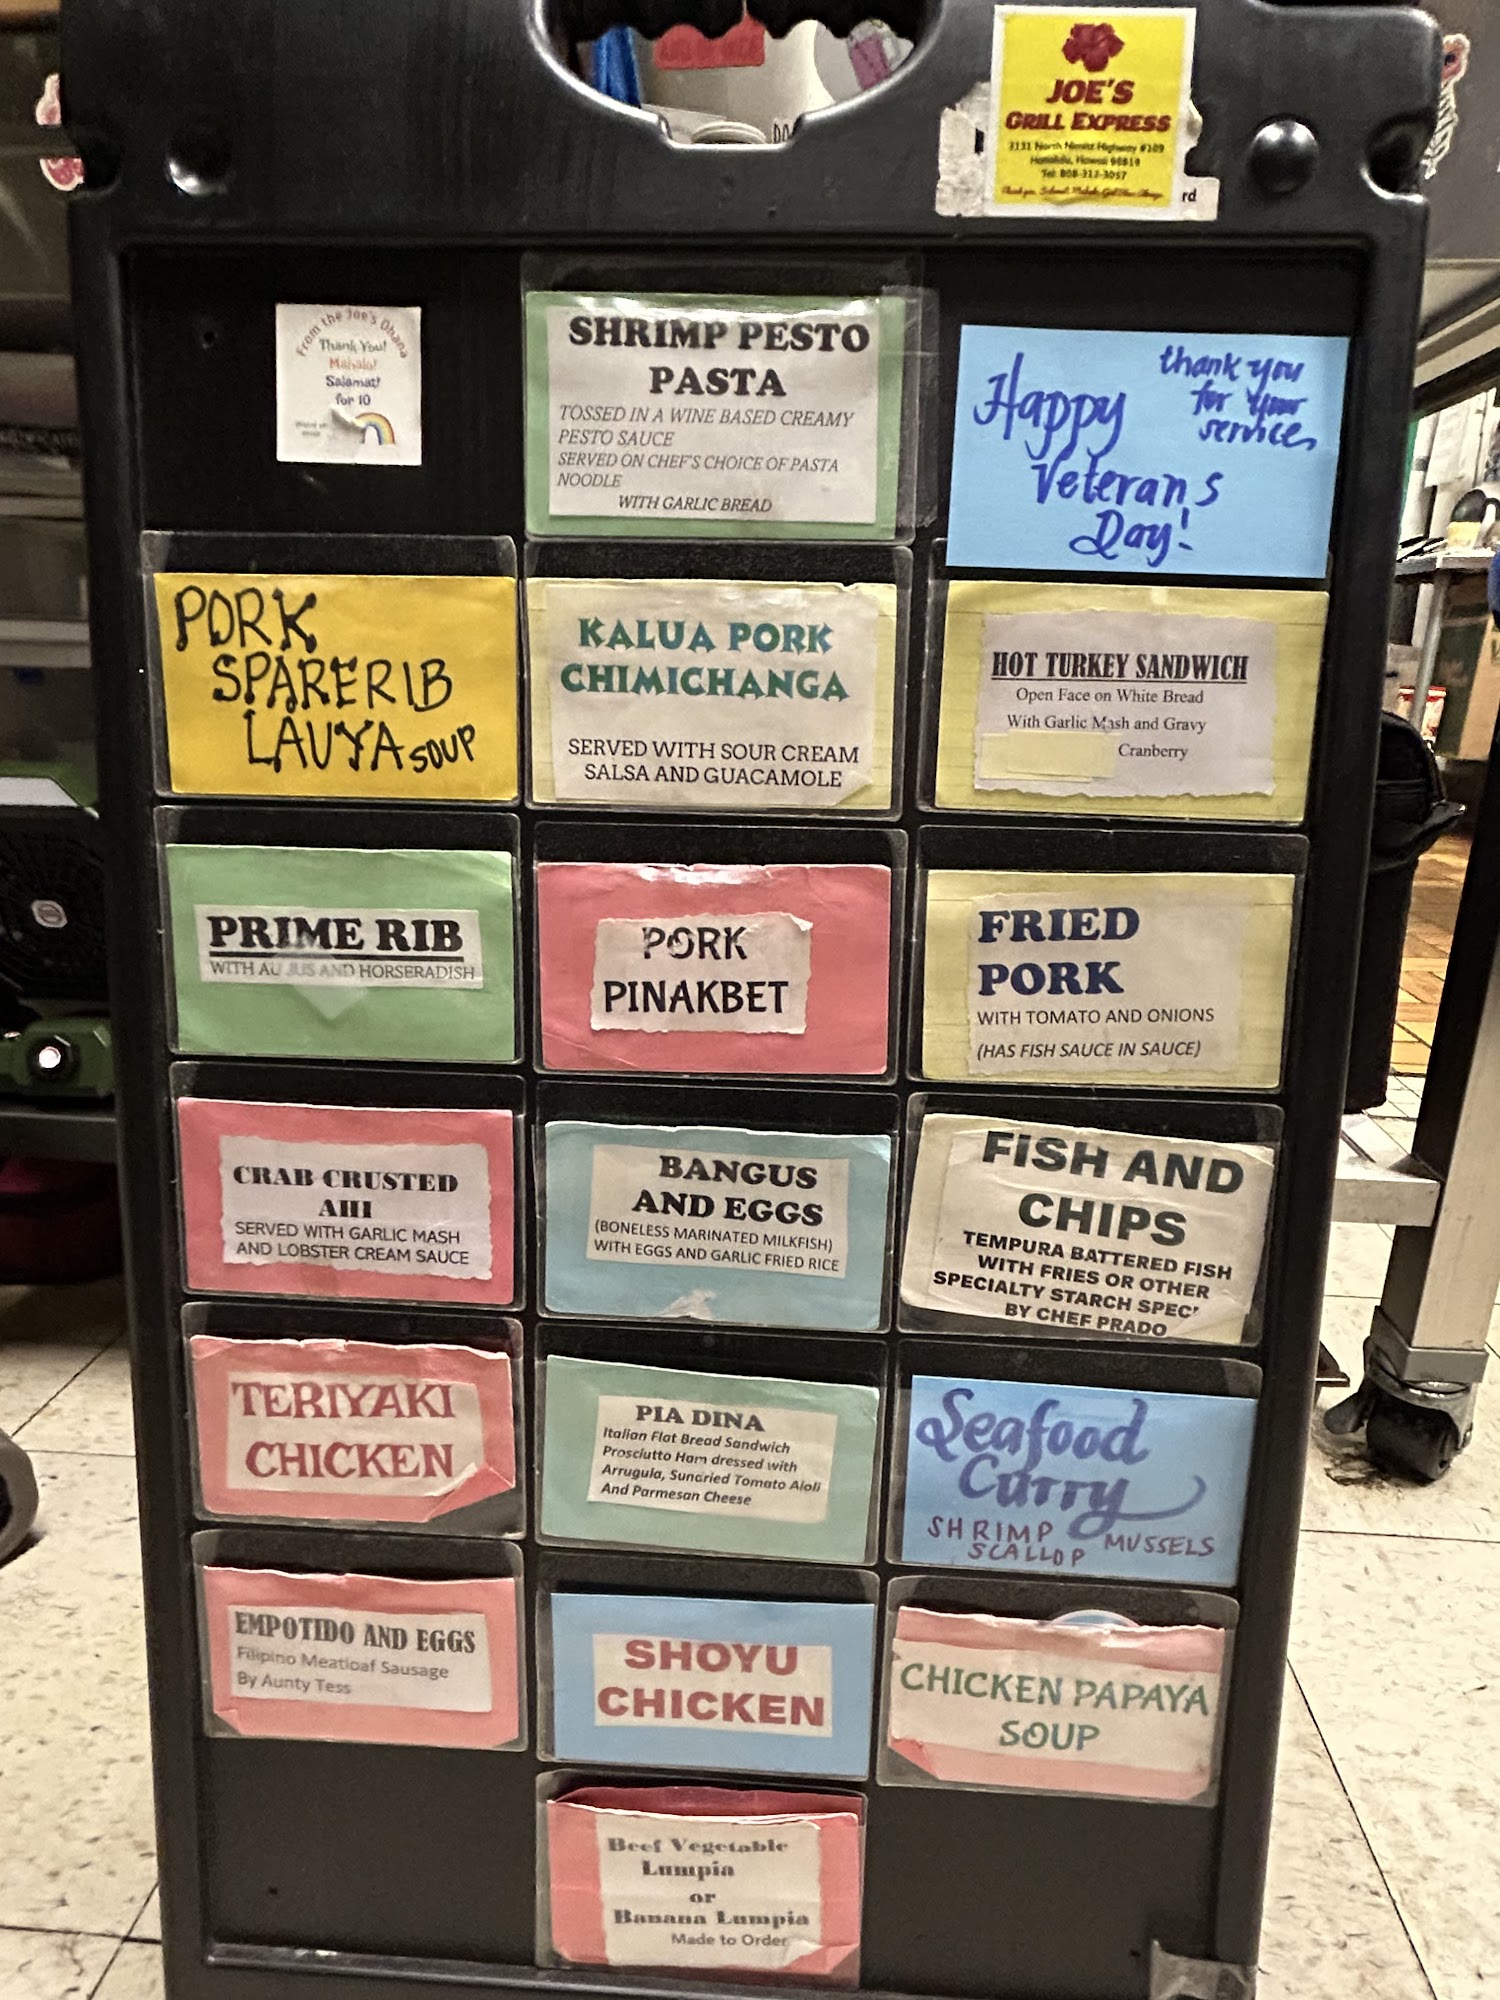 JOE'S
GRILL EXPRESS
3131 North Nimitz Highway #109
Honolulu, Hawaii 96819
Tel: 808-312-3057
rd
From the Joe's Ohana
Thank You!
Mahalo!
Salamat!
for 10
SHRIMP PESTO
PASTA
TOSSED IN A WINE BASED CREAMY
PESTO SAUCE
SERVED ON CHEF'S CHOICE OF PASTA
NOODLE
WITH GARLIC BREAD
Happy
Veterans
Day!
thank you
for your
service,
PORK
SPARERIB
LAUYA SOUP
KALUA PORK
CHIMICHANGA
SERVED WITH SOUR CREAM
SALSA AND GUACAMOLE
HOT TURKEY SANDWICH
Open Face on White Bread
With Garlic Mash and Gravy
Cranberry
PRIME RIB
WITH AU JUS AND HORSERADISH
PORK
PINAKBET
FRIED
PORK
WITH TOMATO AND ONIONS
(HAS FISH SAUCE IN SAUCE)
CRAB CRUSTED
AHI
SERVED WITH GARLIC MASH
AND LOBSTER CREAM SAUCE
BANGUS
AND EGGS
(BONELESS MARINATED MILKFISH)
WITH EGGS AND GARLIC FRIED RICE
FISH AND
CHIPS
TEMPURA BATTERED FISH
WITH FRIES OR OTHER
SPECIALTY STARCH SPEC'
BY CHEF PRADO
TERIYAKI
CHICKEN
PIA DINA
Italian Flat Bread Sandwich
Prosciutto Ham dressed with
Arrugula, Sundried Tomato Aioli
And Parmesan Cheese
Seafood
Curry
SHRIMP MUSSELS
SCALLOP
EMPOTIDO AND EGGS
Filipino Meatloaf Sausage
By Aunty Tess
SHOYU
CHICKEN
CHICKEN PAPAYA
SOUP
Beef Vegetable
Lumpia
or
Banana Lumpia
Made to Order